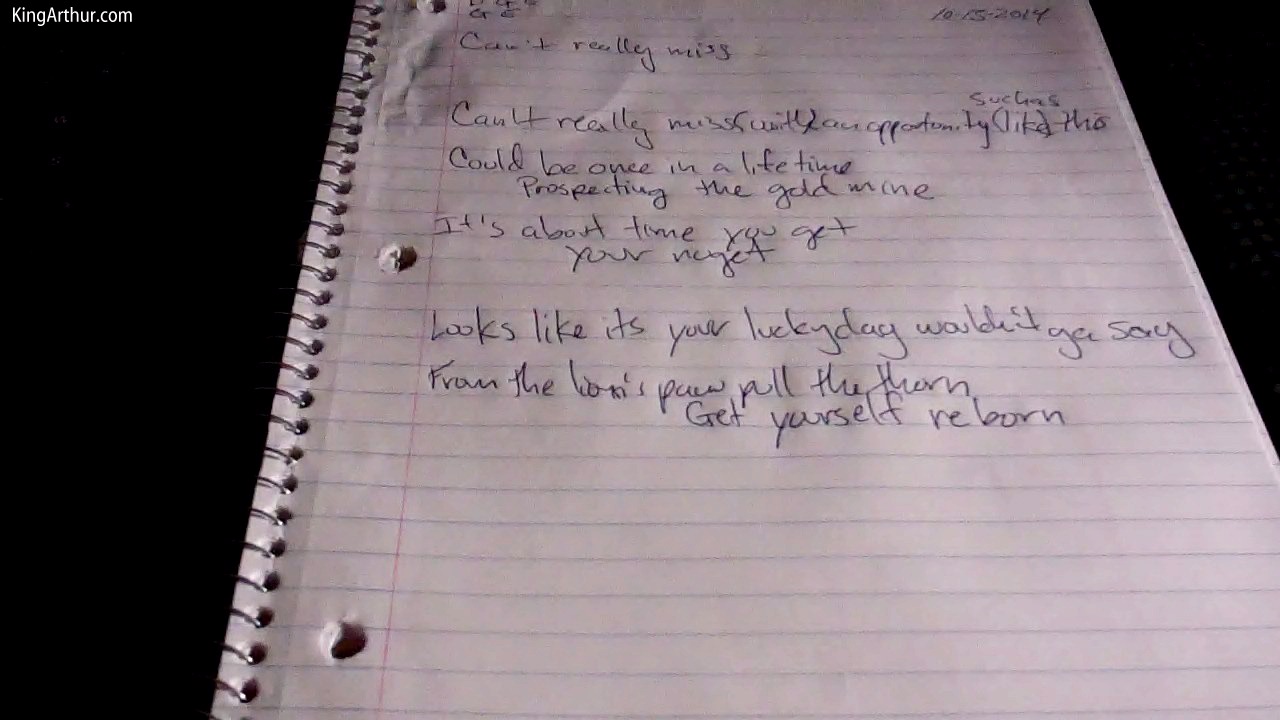 KingArthur.com
10-15-2014
Can't really miss
such as
Can't really miss (with) an opportunity (like) this
Could be once in a lifetime
Prospecting the gold mine
It's about time you get
your nuget
Looks like its your luckyday wouldn't ya say
From the lion's paw pull the thorn
Get yourself reborn